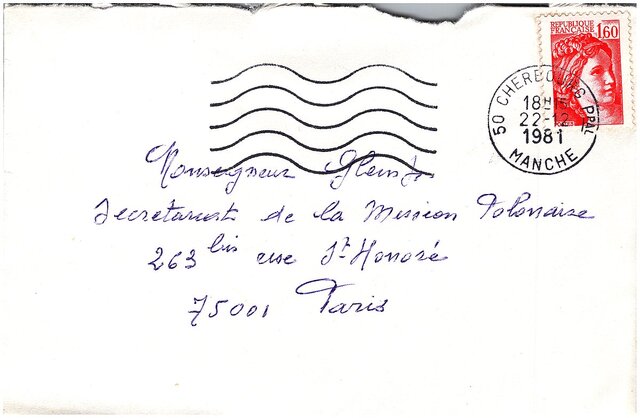 REPUBLIQUE
FRANÇAISE 1,60
50 CHERBOURG PPAL
18H
22-12
1981
MANCHE
Monseigneur
Secretariat de la Mission Polonaise
263 bis rue St Honoré
75001 Paris